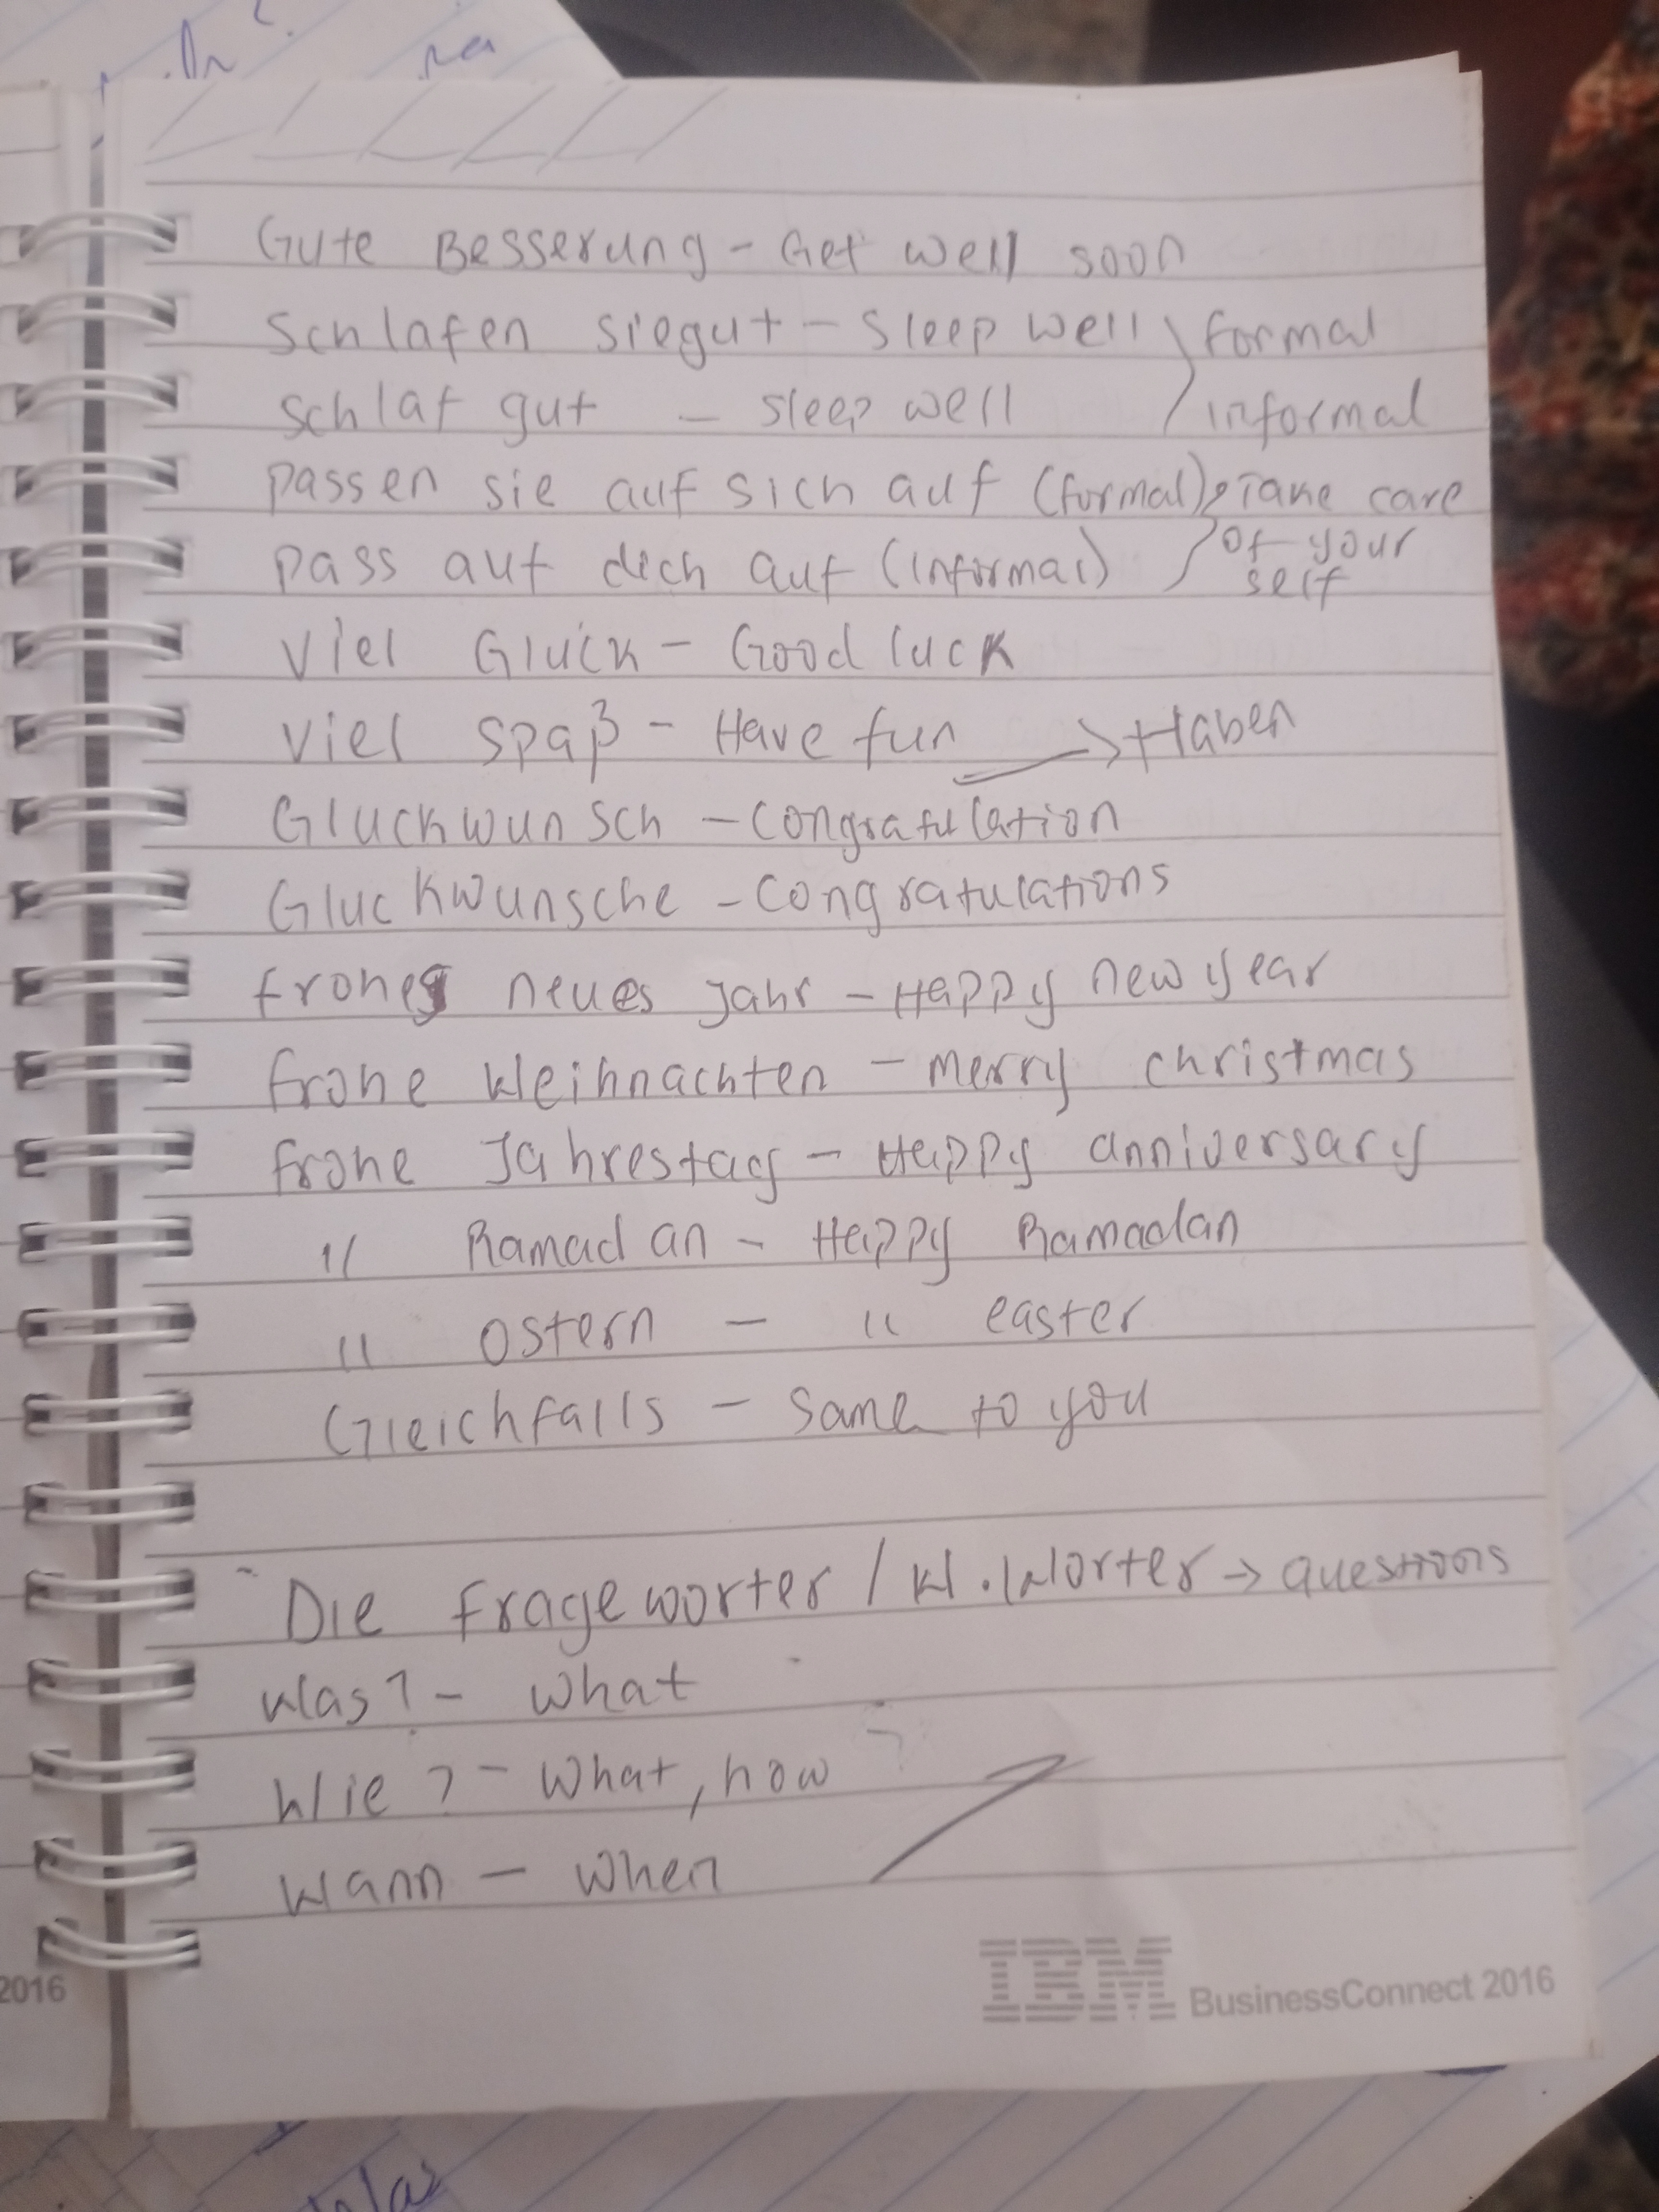 Gute Besserung - Get well soon
Schlafen siegut - Sleep well formal
schlaf gut - sleep well informal
passen sie auf sich auf (formal) Take care
pass auf dich auf (informal) of your
self
Viel Gluck - Good luck
Viel spaß - Have fun → Haben
Gluckwunsch - congratulation
Gluckwunsche - congratulations
frohes neues Jahr - Happy new year
frohe Weihnachten - merry christmas
frohe Jahrestag - Happy anniversary
" Ramadan - Happy Ramadan
" Ostern - " easter
Gleichfalls - Same to you
Die frageworter / W.Worter → questions
Was? - what
Wie? - What, how
Wann - When
IBM BusinessConnect 2016
2016